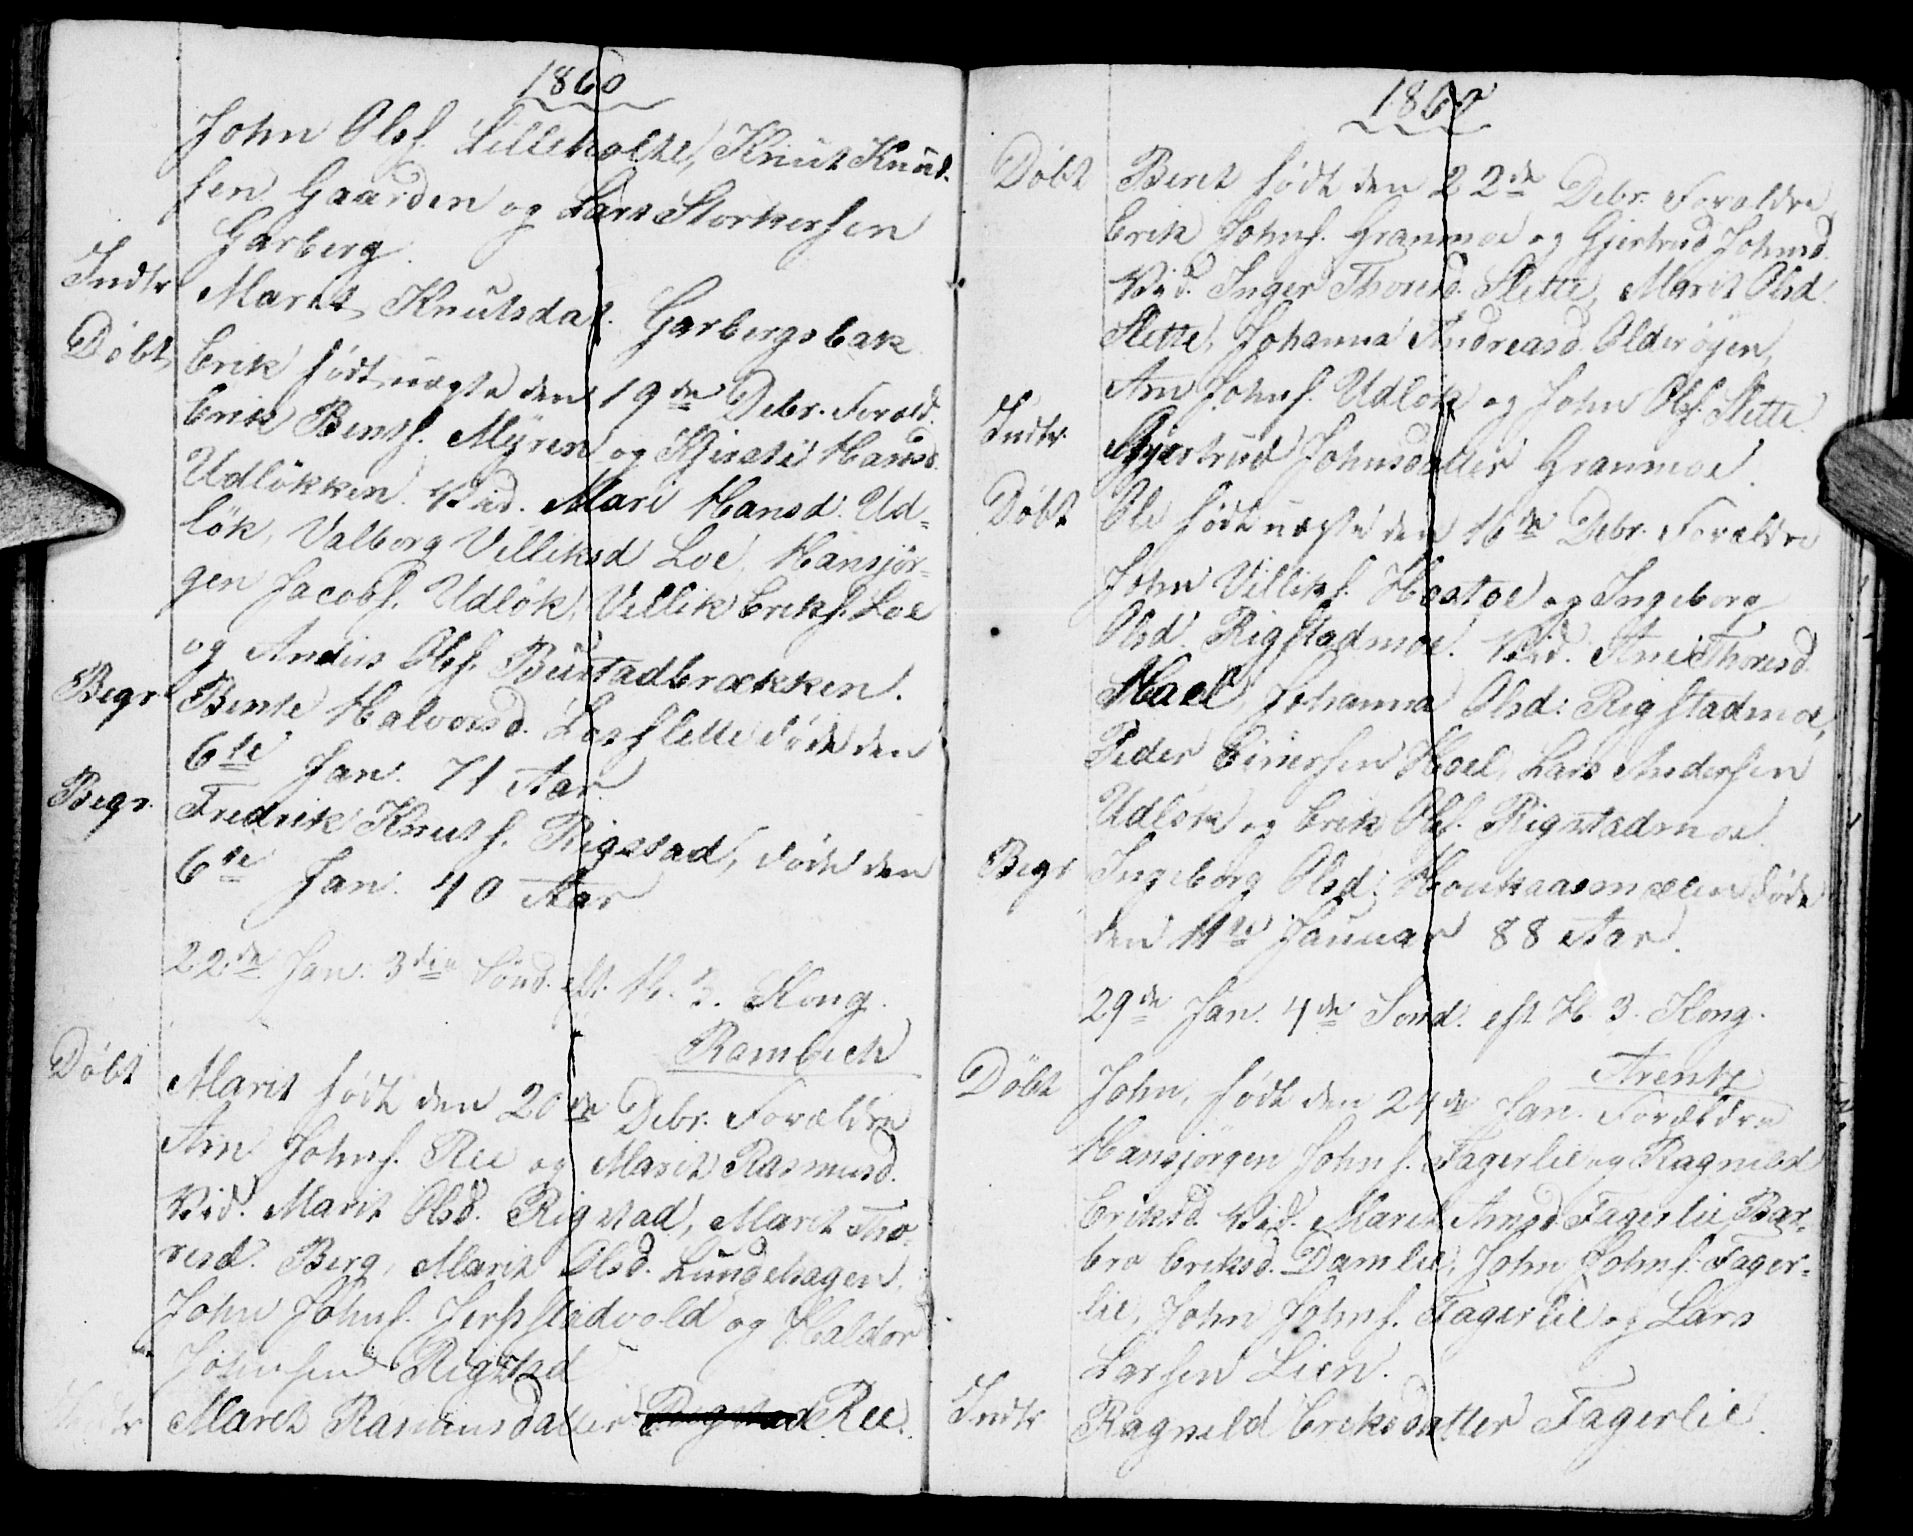 1860
John Olsf. Lilleholte, Knut Knud-
sen Gaarden og Lars Storkersen
Garberg.
Indtr Marit Knutsdat. Garbergsbak
Døbt Erik født uægte den 19de Debr. Foræld.
Erik Bentsf. Myren og Kjirsti Hansd.
Udløkken. Vid. Mari Hansd. Ud=
løk, Valborg Villiksd Loe, Hansjør=
gen Jacobsf. Udløk, Villik Eriksf. Loe
og Anders Olsf. Burstadbrækken.
Begr Bente Halvorsd. Loeslette døde den
6te Jan. 71 Aar.
Begr. Fredrik Knutsf. Rigstad, døde den
6te Jan. 40 Aar
22de Jan. 3die Sønd. eft. H. 3. Kong.
Rambech
Døbt Marit født den 20de Debr. Forældre
Arn Johnsf. Ree og Marit Rasmusd.
Vid. Marit Olsd. Rigstad, Marit Tho-
resd. Berg, Marit Olsd. Lundehagen,
John Johnsf. Jerpstadvold og Haldor
Johnsen Rigstad
Indtr Marit Rasmusdatter Rigstad Ree.
1860
Døbt Beret født den 22de Debr. Forældre
Erik Johnsf. Granmoe og Gjertrud Johnsd.
Vid. Inger Thoresd. Slette, Marit Olsd.
Slette, Johanna Andreasd. Olderøyen,
Arn Johnsf. Udløk og John Olsf. Slette.
Indtr. Gjertrud Johnsdatter Granmoe.
Døbt Ole født uægte den 16de Debr. Forældre
John Villiksf. Høstoe og Ingeborg
Olsd. Rigstadmoe. Vid. Ane Thoresd.
Hoel, Johanna Olsd: Rigstadmoe,
Peder Einersen Hoel, Lars Andersen
Udløk og Erik Olsf. Rigstadmoe.
Begr Ingeborg Olsd: Houkaasmælen døde
den 11te Januar 88 Aar.
29de Jan. 4de Sønd. eft H. 3. Kong.
Arentz
Døbt John, født den 24de Jan. Forældre
Hansjørgen Johnsf. Fagerlie og Ragnild
Eriksd. Vid. Marit Arnsd. Fagerlie, Bar-
bro Eriksd. Damlie, John Johnsf. Fager=
lie, John Johnsf. Fagerlie og Lars
Larsen Lien.
Indtr Ragnild Eriksdatter Fagerlie.